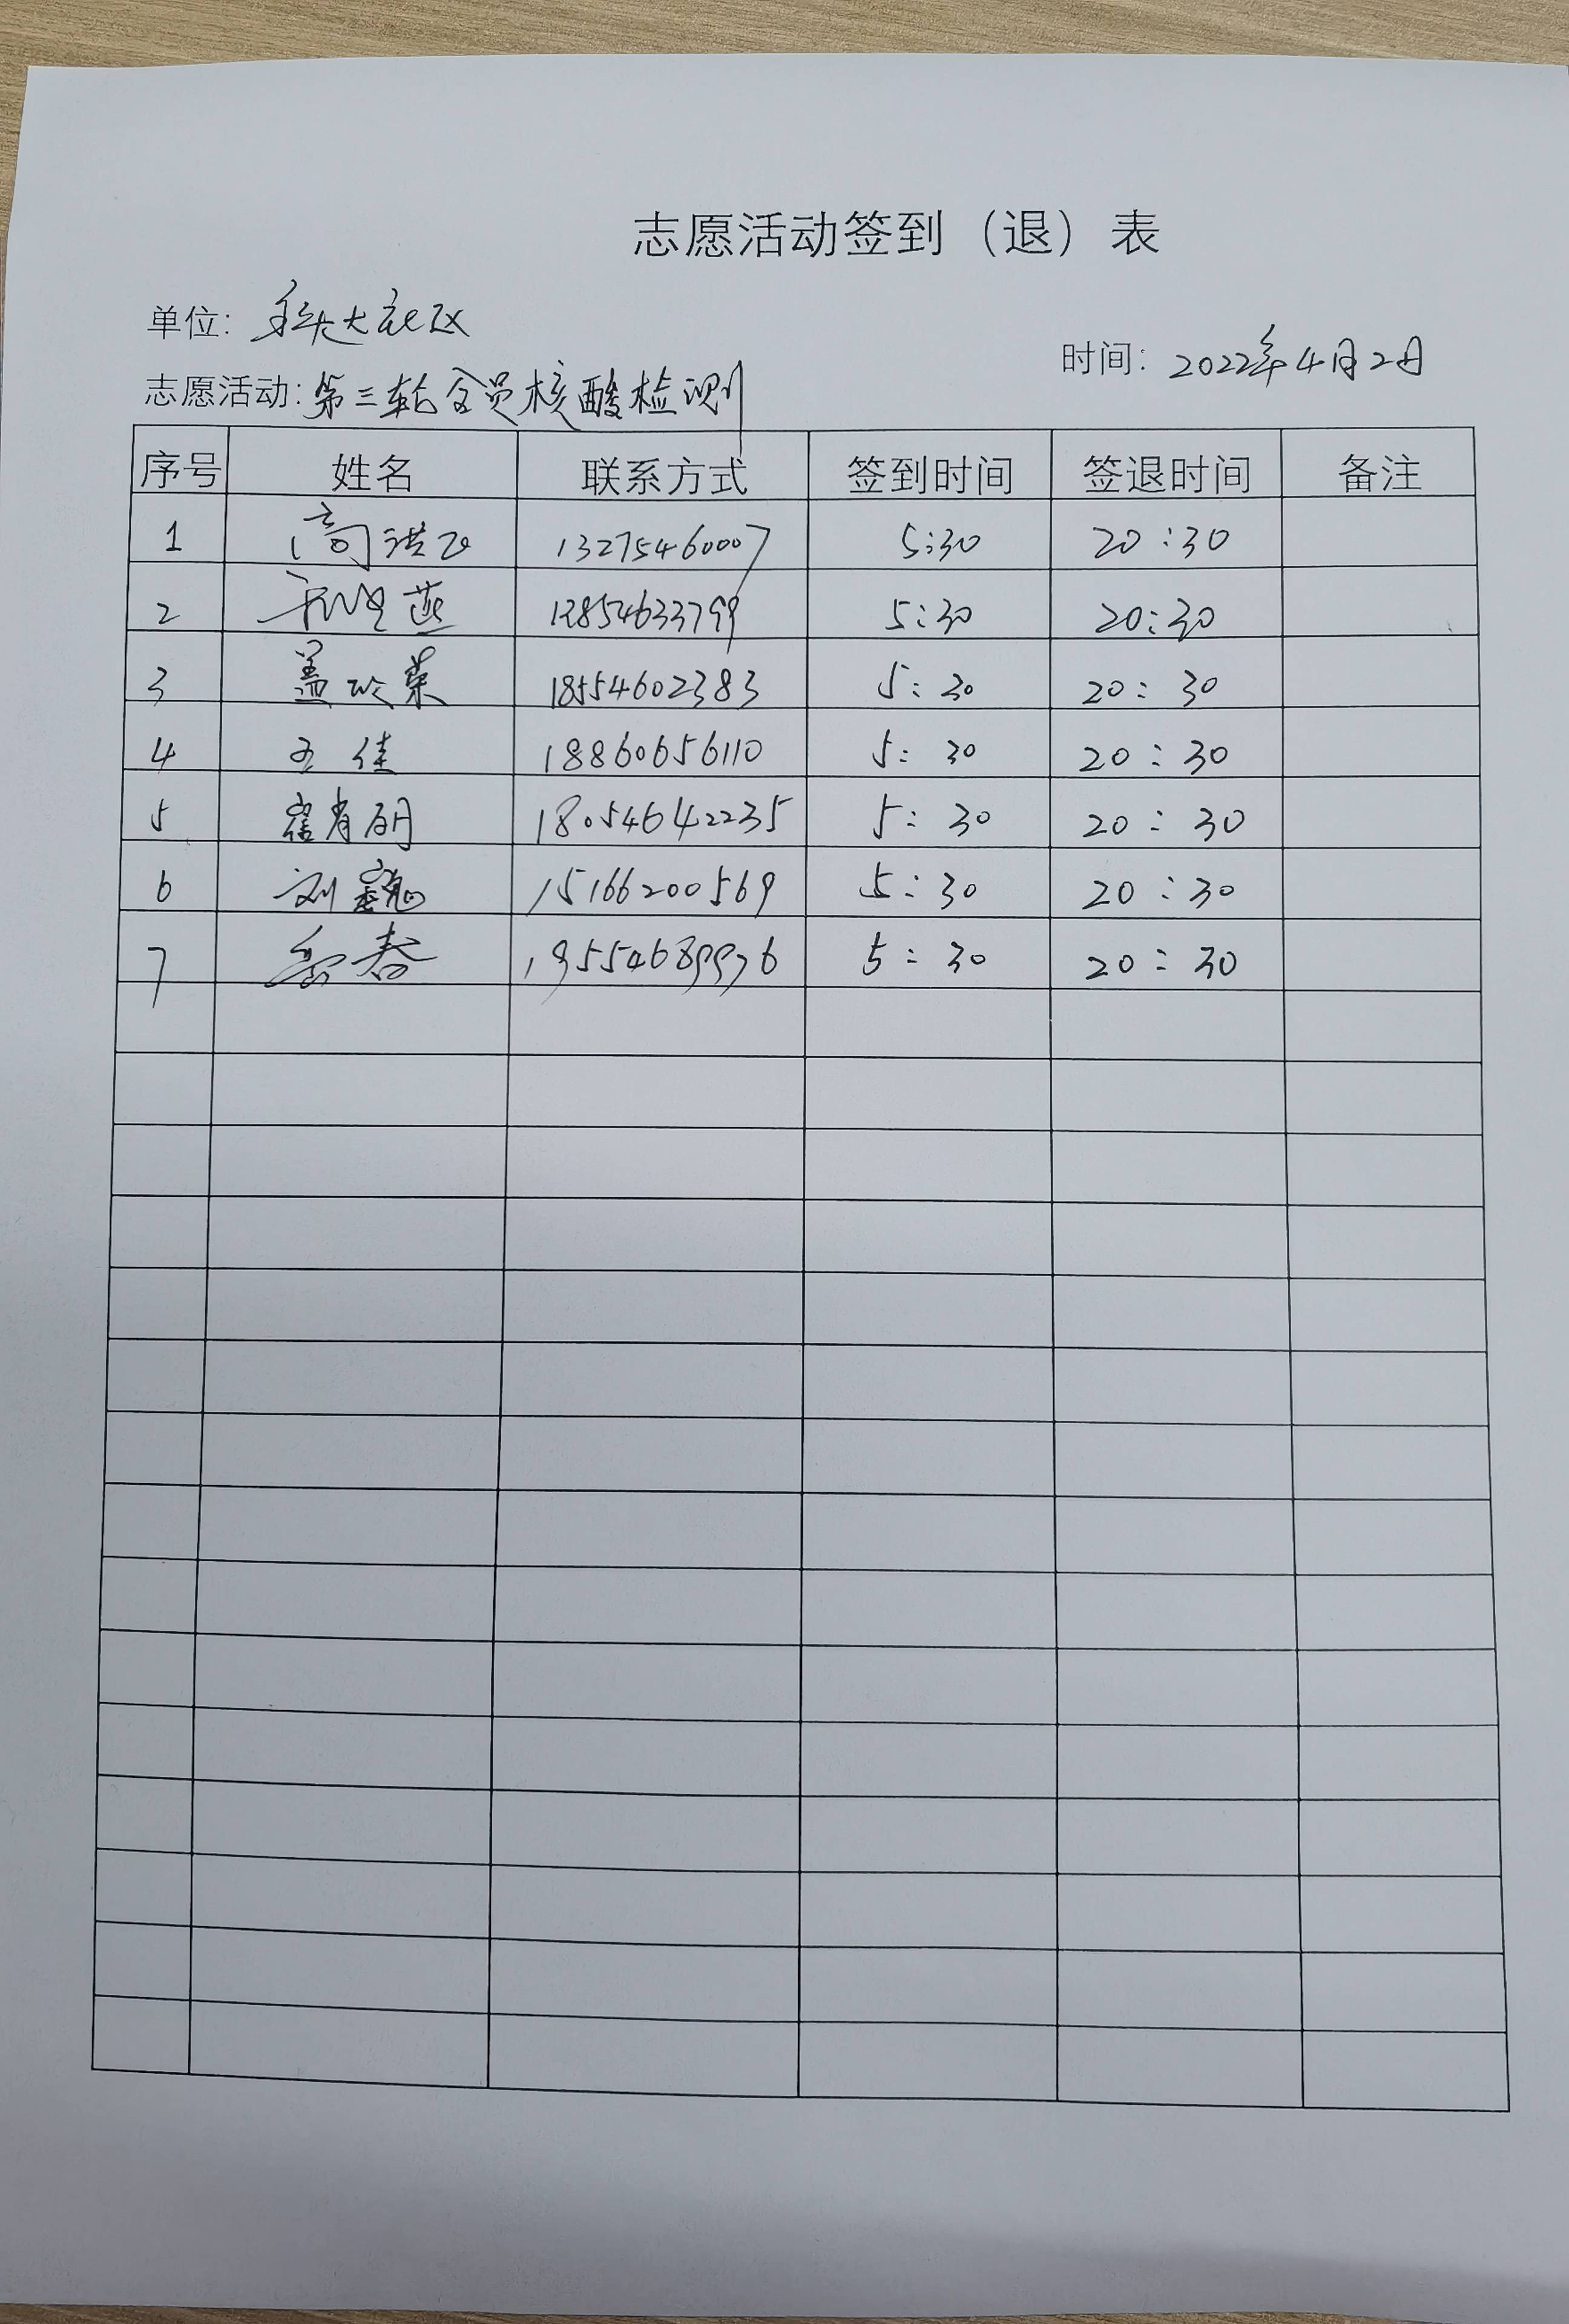 志愿活动签到（退）表
单位: 科大社区
时间: 2022年4月2日
志愿活动: 第三轮全员核酸检测
序号 姓名 联系方式 签到时间 签退时间 备注
1 高洪飞 13275460007 5:30 20:30
2 燕 13854633799 5:30 20:30
3 盖 荣 18554602383 5:30 20:30
4 王佳 18860656110 5:30 20:30
5 崔肖朋 18054642235 5:30 20:30
6 刘 15166200569 5:30 20:30
7 春 5:30 20:30